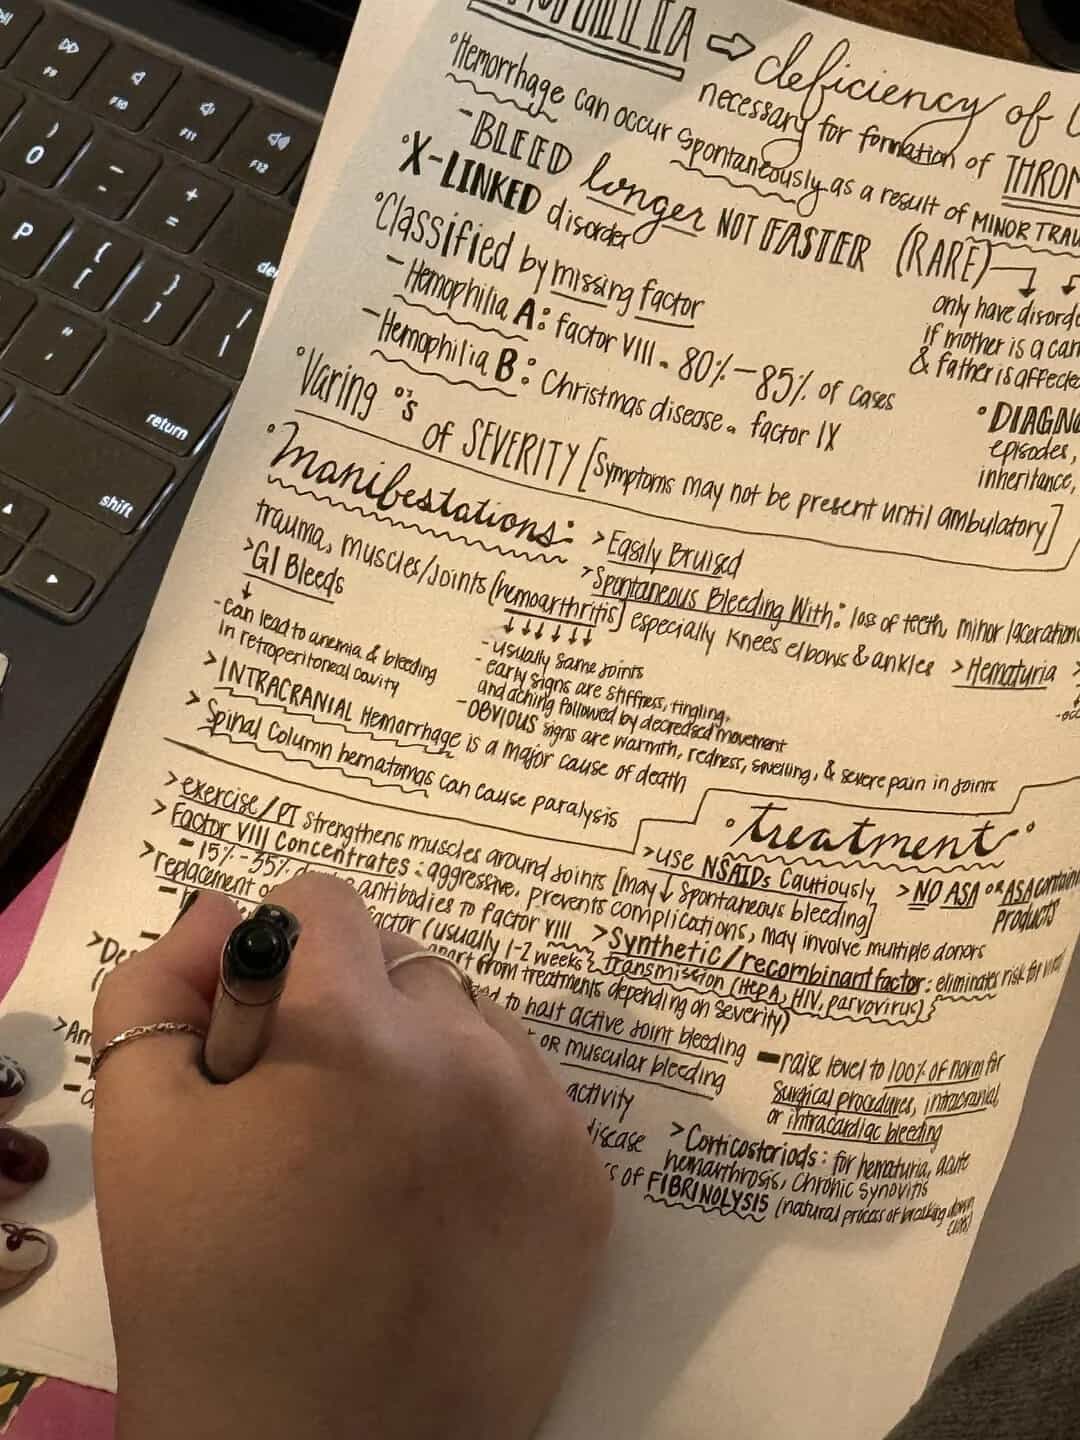 deficiency of
necessary for formation of THROM
°Hemorrhage can occur spontaneously as a result of MINOR TRAU
-BLEED longer NOT FASTER (RARE)
only have disord
if mother is a car
& father is affecte
°X-LINKED disorder
°Classified by missing factor
- Hemophilia A: factor VIII - 80%-85% of cases
- Hemophilia B: Christmas disease - factor IX
°DIAGN
episodes,
inheritance,
°Varing °'s of SEVERITY [Symptoms may not be present until ambulatory]
°Manifestations:
>Easily Bruised
>Spontaneous Bleeding With: loss of teeth, minor laceration
trauma, muscles/Joints (hemoarthritis) especially knees elbows & ankles
>Hematuria
- usually same joints
- early signs are stiffness, tingling,
and aching followed by decreased movement
-OBVIOUS signs are warmth, redness, swelling, & severe pain in joints
>GI Bleeds
-can lead to anemia & bleeding
in retroperitoneal cavity
>INTRACRANIAL Hemorrhage is a major cause of death
> Spinal Column hematomas can cause paralysis
°treatment°
>exercise/PT strengthens muscles around joints [may ↓ spontaneous bleeding]
>use NSAIDs Cautiously
>NO ASA or ASA containi
products
> Factor VIII Concentrates: aggressive, prevents complications, may involve multiple donors
- 15%-35% antibodies to factor VIII
>Synthetic/recombinant factor: eliminates risk for viral
transmission (HEPA, HIV, parvovirus)
>replacement factor (usually 1-2 weeks
apart from treatments depending on severity)
to halt active joint bleeding
OR muscular bleeding
-raise level to 100% of norm for
surgical procedures, intracranial,
or intracardiac bleeding
>Des
activity
disease
>Corticosteriods: for hematuria, acute
hemarthrosis, Chronic Synovitis
>Am
of FIBRINOLYSIS (natural process of breaking down
clots)
F9
F10
F11
F12
)
0
-
+
=
del
P
{
[
}
]
|
"
'
return
shift